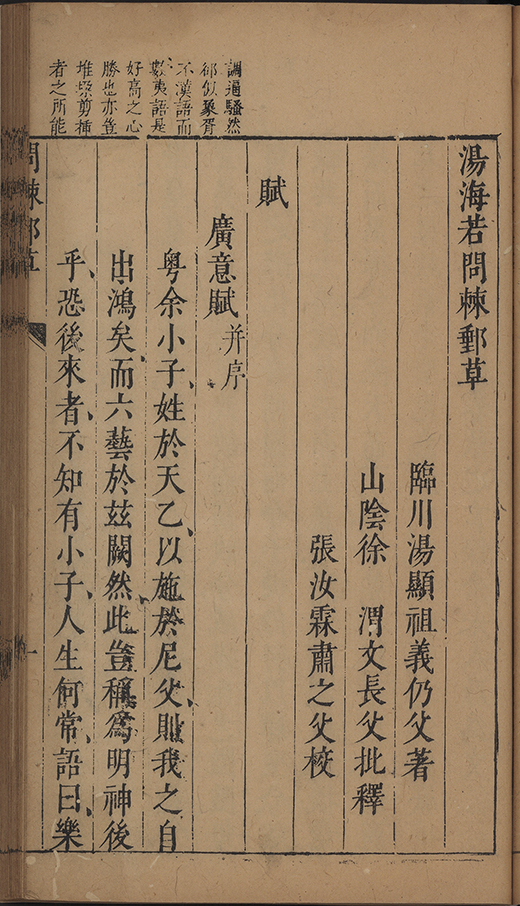 調逼騷然
卻似象胥
不漢語而
數夷語是
好高之心
勝也亦豈
堆剪插
者之所能
湯海若問棘郵草
臨川湯顯祖義仍父著
山陰徐　渭文長父批釋
張汝霖肅之父校
賦
廣意賦并序
粵余小子姓於天乙以施於尼父則我之自
出鴻矣而六藝於茲闕然此豈稱為明神後
乎恐後來者不知有小子人生何常語曰樂
問棘郵草
一